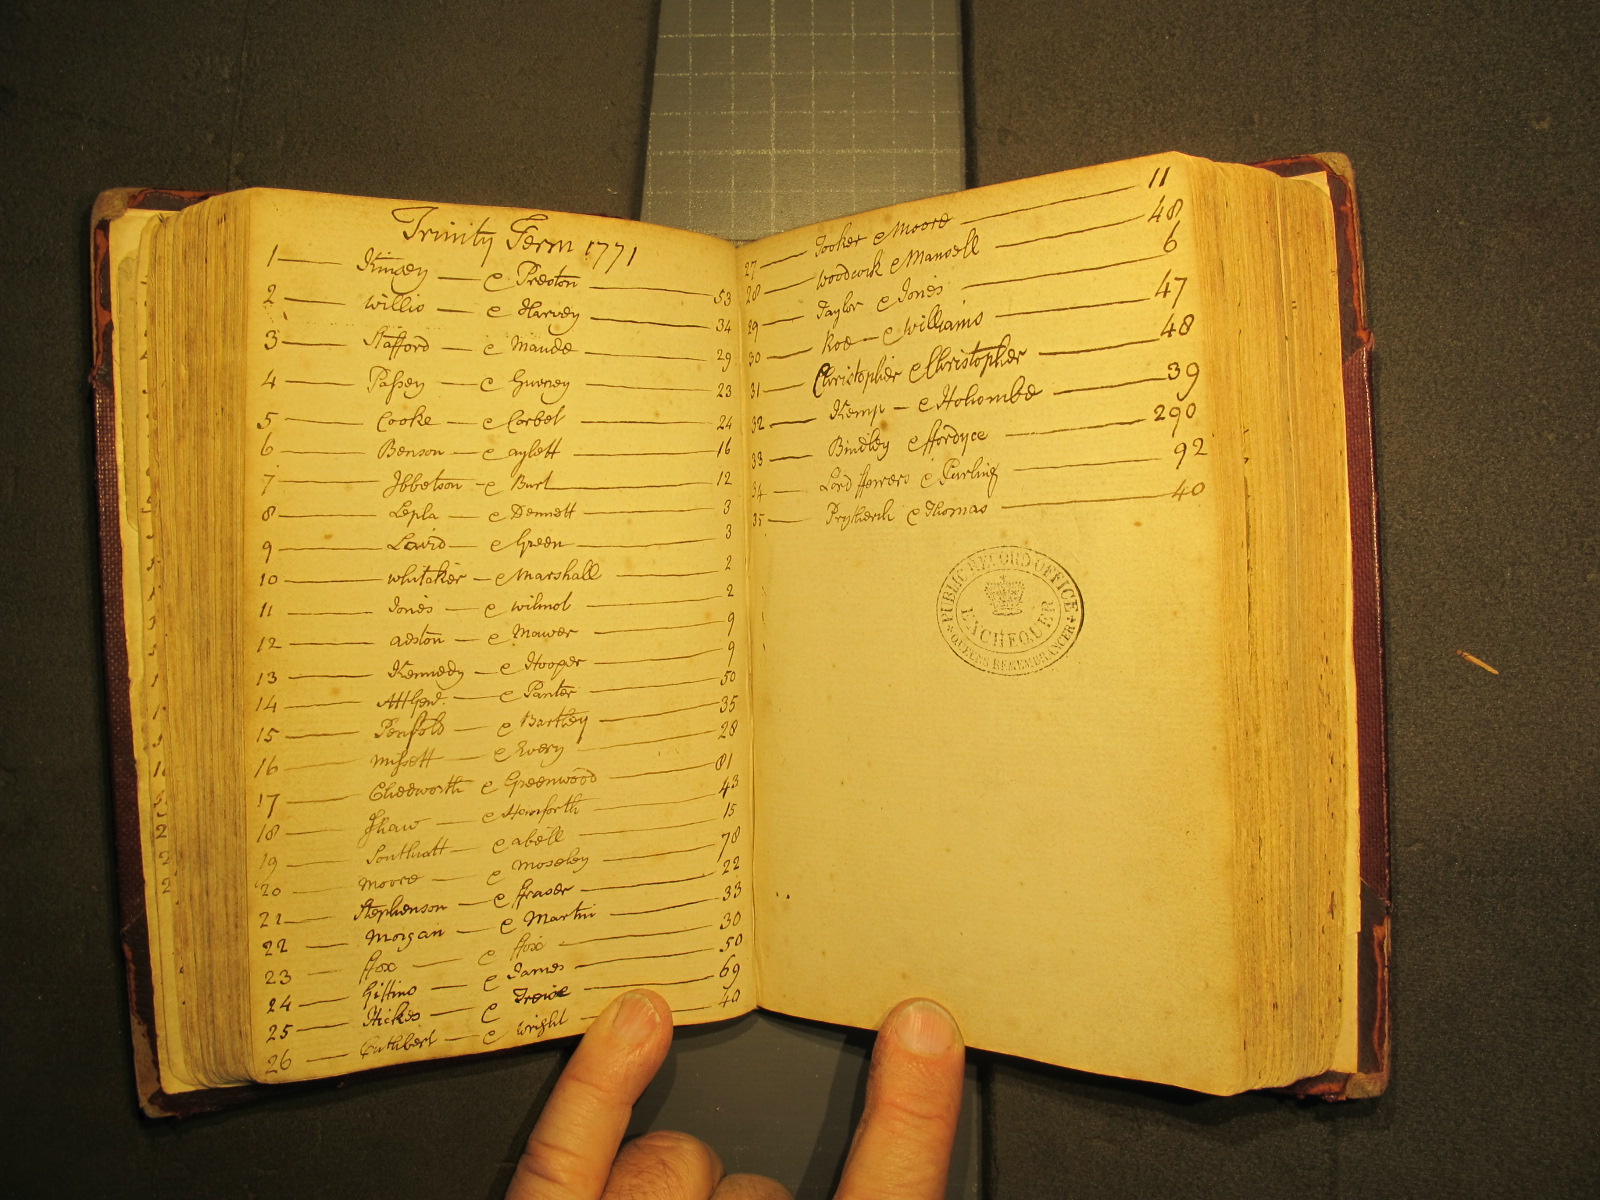 Trinity Term 1771
1 — Kinsey — e Preston — 53
2 — Willis — e Harvey — 34
3 — Stafford — e Maude — 29
4 — Passey — e Guersey — 23
5 — Cooke — e Corbet — 24
6 — Benson — e aylett — 16
7 — Ibbetson — e Burt — 12
8 — Lepla — e Dennett — 3
9 — David — e Green — 3
10 — Whitaker — e Marshall — 2
11 — Jones — e Wilmot — 2
12 — aston — e Mawer — 9
13 — Kennedy — e Hooper — 9
14 — Att Gen.l — e Panter — 50
15 — Penfold — e Bartley — 35
16 — Missett — e Every — 28
17 — Chedworth e Greenwood — 81
18 — Shaw — e Hemforth — 43
19 — Southcott — e abell — 15
20 — Moore — e Moseley — 78
21 — Stephenson — e ffraser — 22
22 — Morgan — e Martin — 33
23 — ffox — e ffox — 30
24 — Gittins — e James — 50
25 — Hickes — e — 69
26 — Cuthbert — e Wright — 40
27 — Tooker e Moore — 11
28 — Woodcock e Mansell — 48
29 — Taylor e Jones — 6
30 — Roe — e Williams — 47
31 — Christopher e Christopher — 48
32 — Kemp — e Holcombe — 39
33 — Bindley e ffordyce — 290
34 — Lord fferrers e Purling — 92
35 — Prytherch e Thomas — 40
PUBLIC RECORD OFFICE
EXCHEQUER
QUEENS REMEMBRANCER